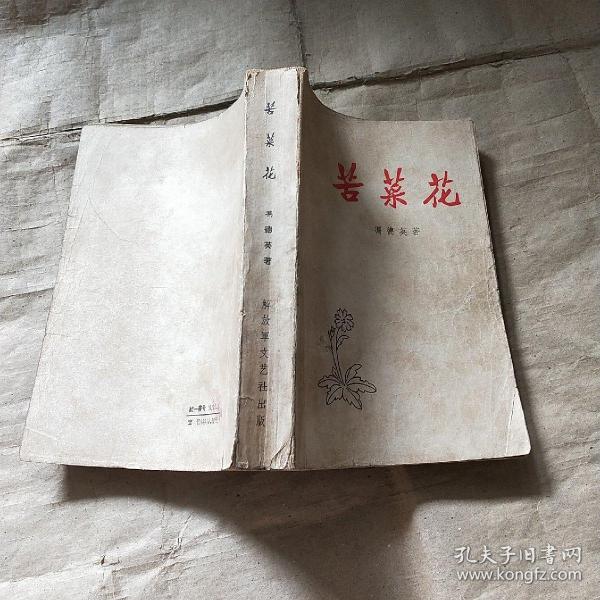 苦菜花
馮德英著
苦菜花
馮德英著
解放军文艺社出版
统一書号
孔夫子旧書网
www.kongfz.com